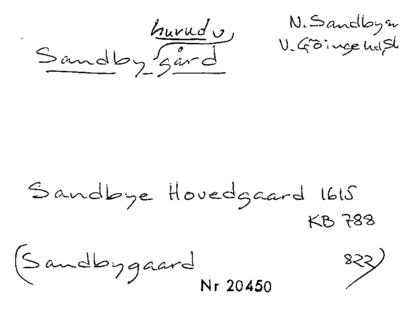 hurud
N. Sandby
Sandby gård
V. Göinge hd, Sk
Sandbye Hovedgaard 1615
KB 788
(Sandbygaard 822)
Nr 20450